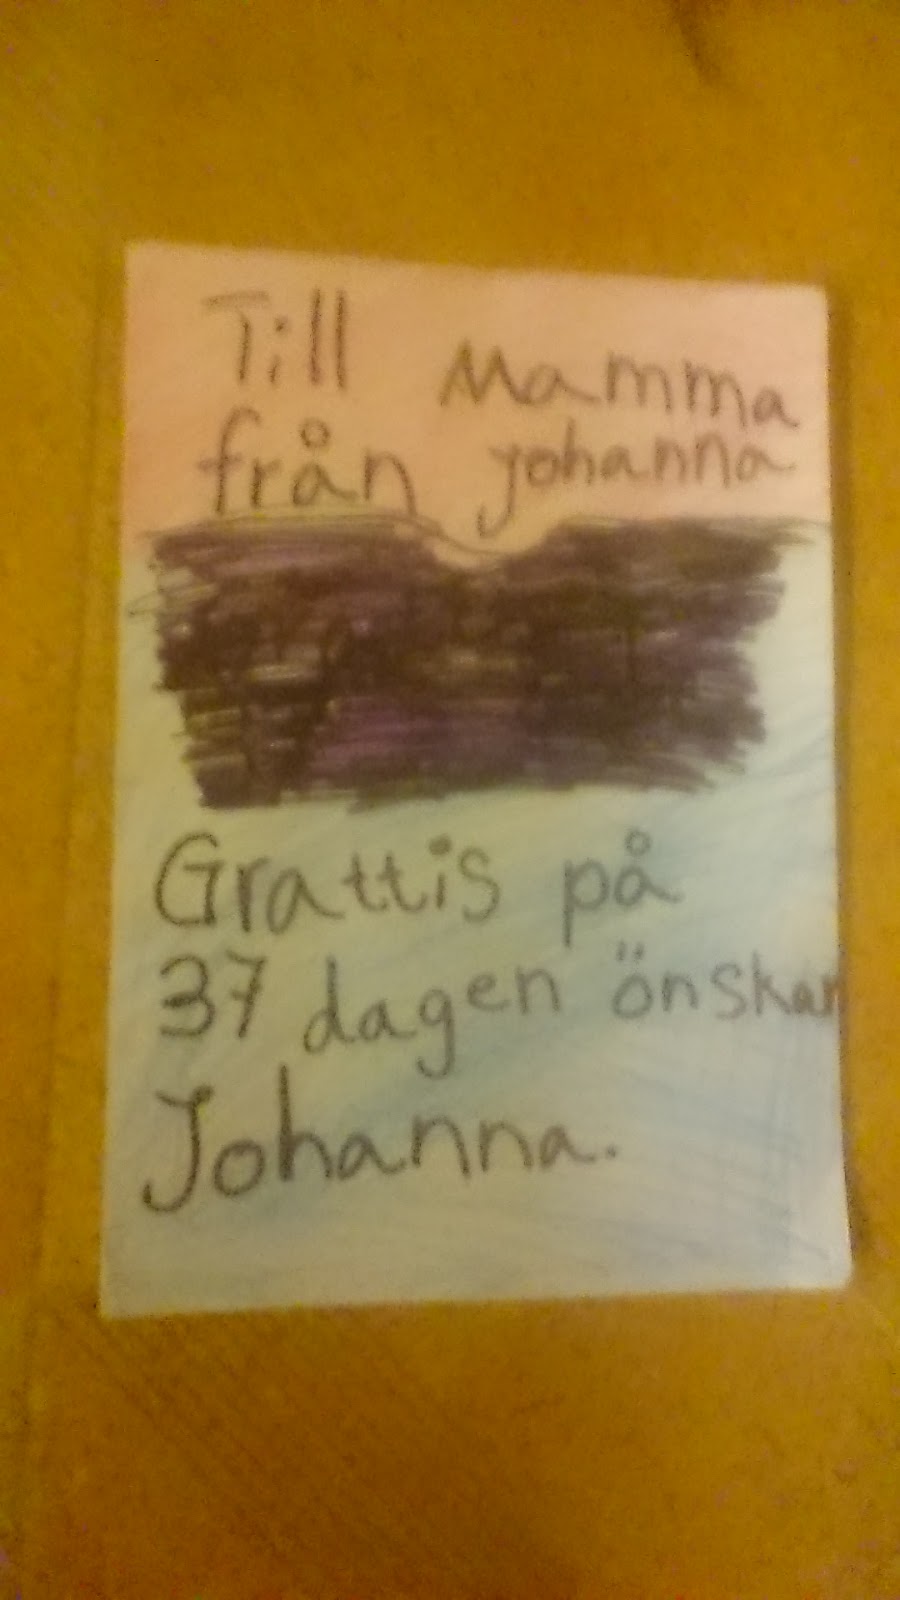 Till Mamma
från Johanna
Grattis på
37 dagen önskar
Johanna.